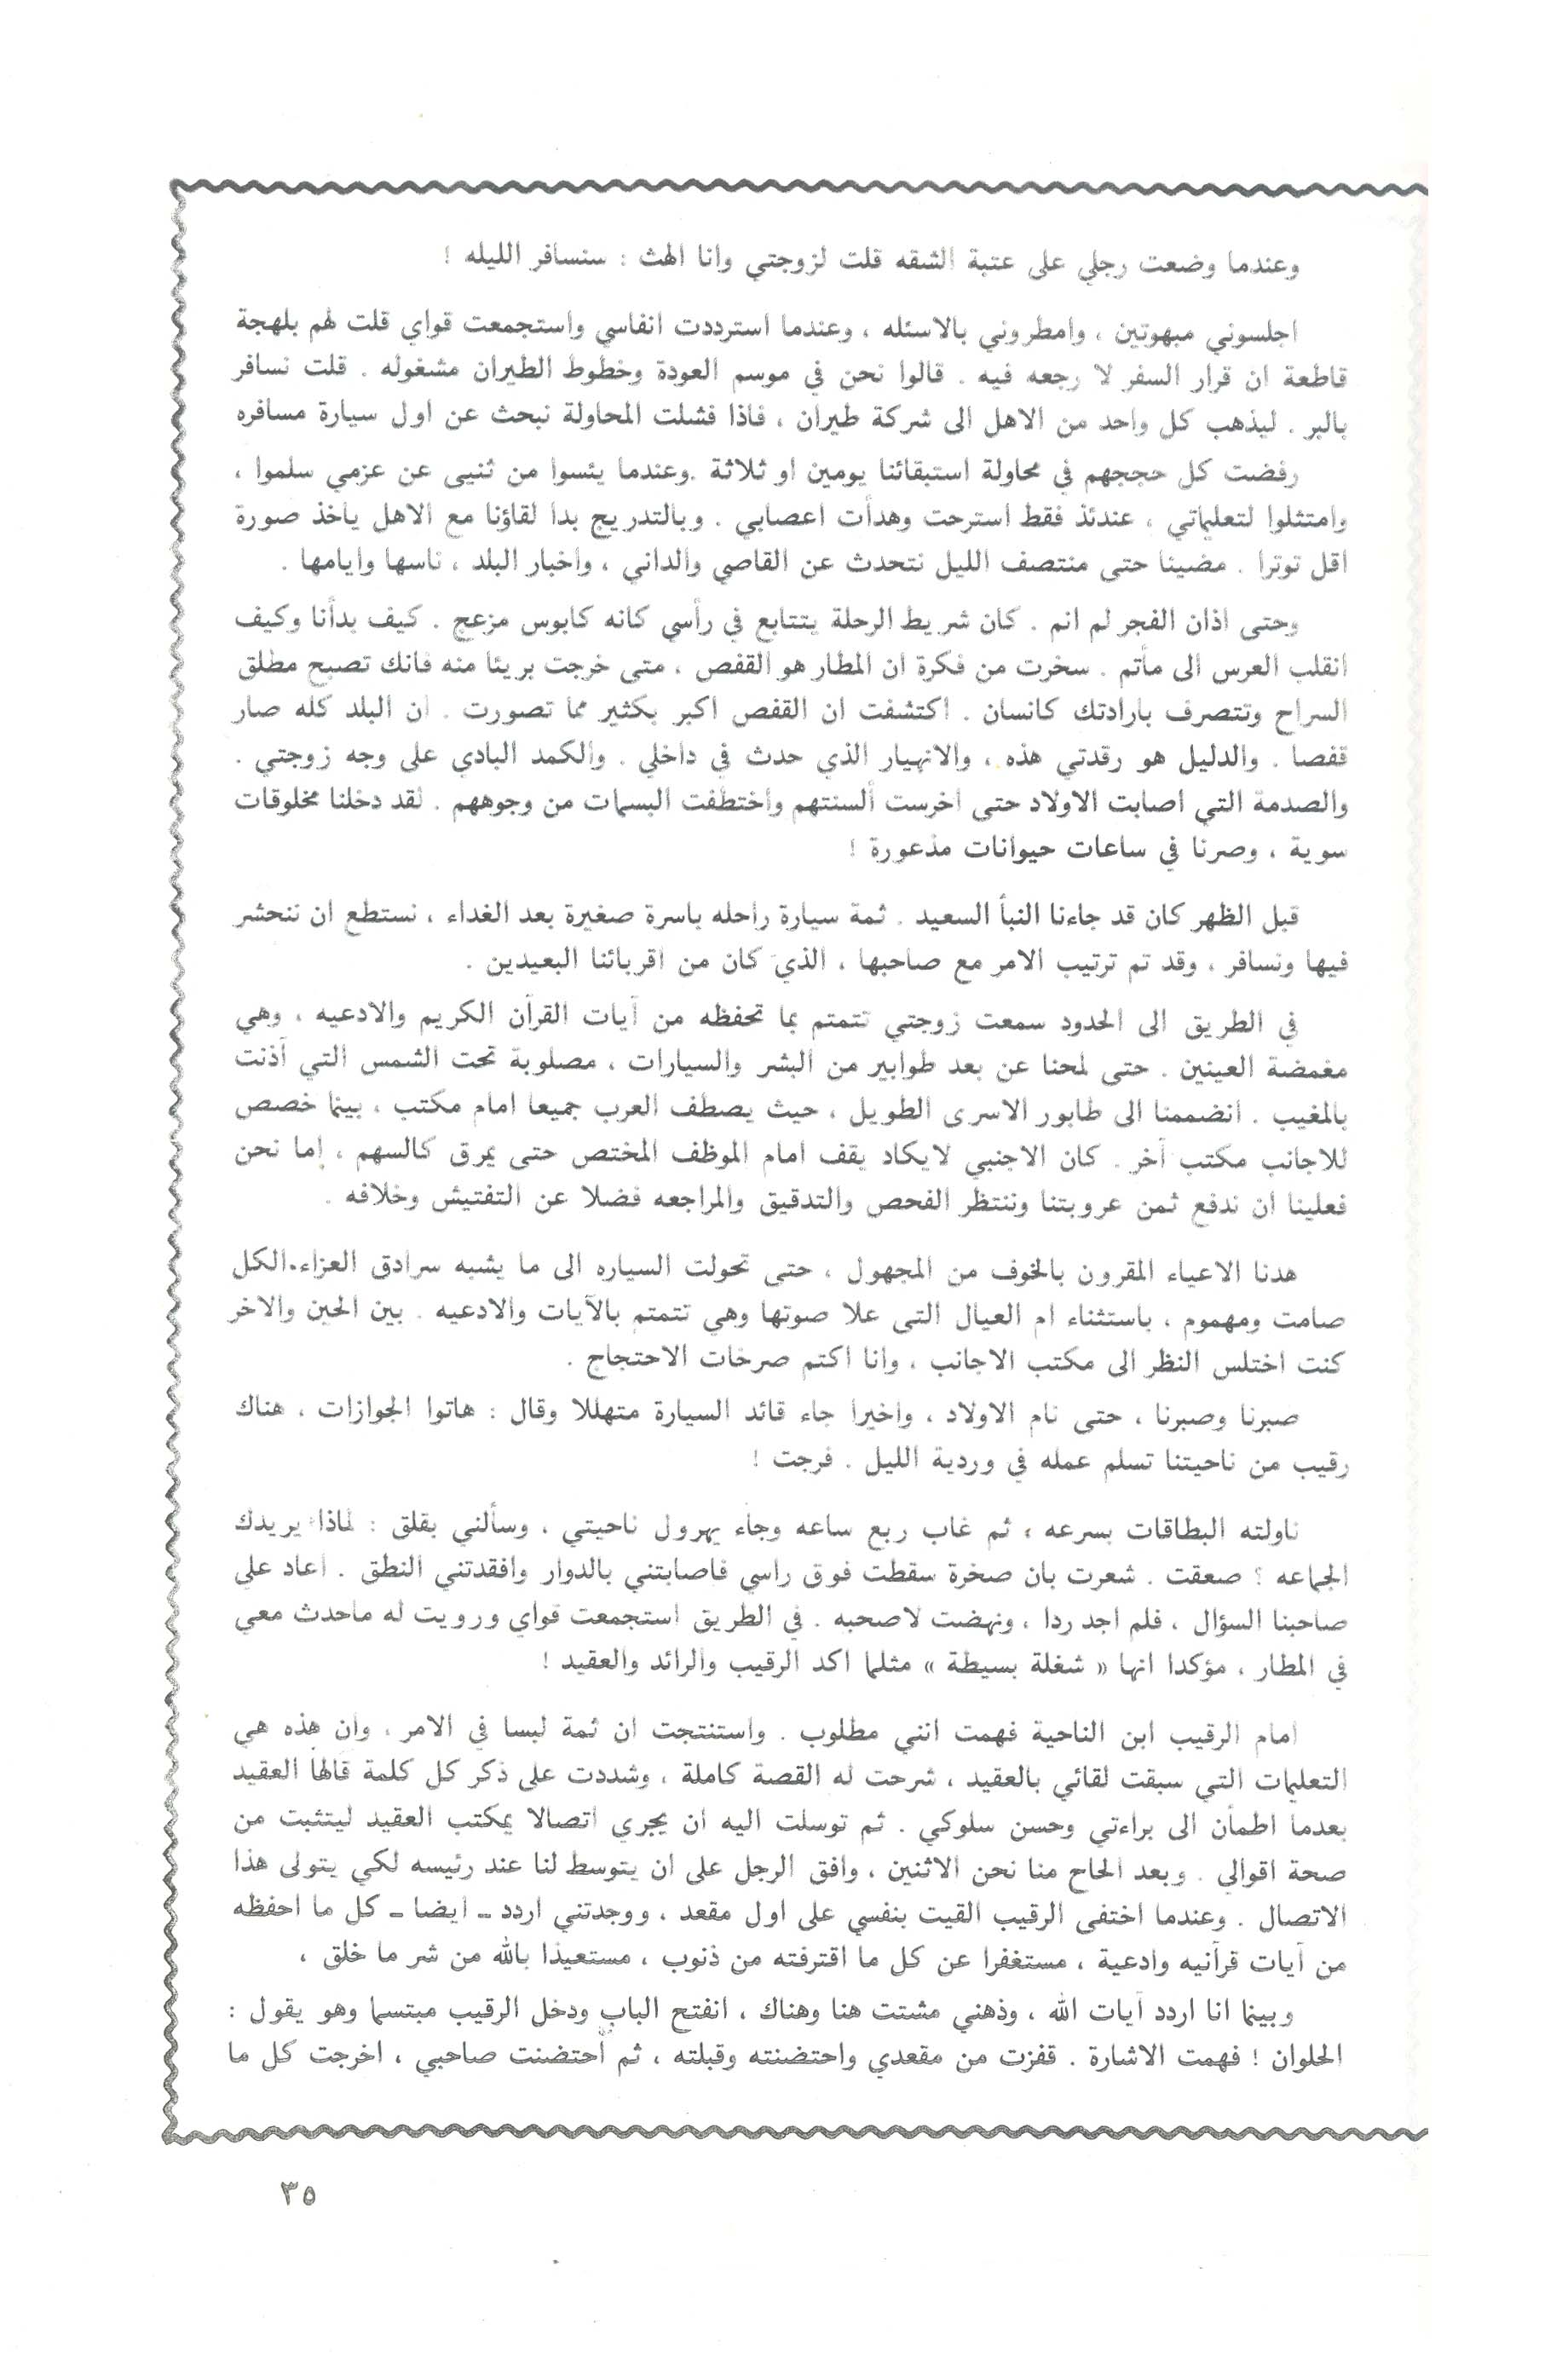 وعندما وضعت رجلي على عتبة الشقه قلت لزوجتي وانا الهث : سنسافر الليله !
اجلسوني مبهوتين ، وامطروني بالاسئله ، وعندما استرددت انفاسي واستجمعت قواي قلت لهم بلهجة
قاطعة ان قرار السفر لا رجعه فيه . قالوا نحن في موسم العودة وخطوط الطيران مشغوله . قلت نسافر
بالبر . ليذهب كل واحد من الاهل الى شركة طيران ، فاذا فشلت المحاولة نبحث عن اول سيارة مسافره
رفضت كل حججهم في محاولة استبقائنا يومين او ثلاثة .وعندما يئسوا من ثنيي عن عزمي سلموا ،
وامتثلوا لتعليماتي ، عندئذ فقط استرحت وهدأت اعصابي . وبالتدريج بدا لقاؤنا مع الاهل ياخذ صورة
اقل توترا . مضينا حتى منتصف الليل نتحدث عن القاصي والداني ، واخبار البلد ، ناسها وايامها .
وحتى اذان الفجر لم انم . كان شريط الرحلة يتتابع في رأسي كانه كابوس مزعج . كيف بدأنا وكيف
انقلب العرس الى مأتم . سخرت من فكرة ان المطار هو القفص ، متى خرجت بريئا منه فانك تصبح مطلق
السراح وتتصرف بارادتك كانسان . اكتشفت ان القفص اكبر بكثير مما تصورت . ان البلد كله صار
قفصا . والدليل هو رقدتي هذه ، والانهيار الذي حدث في داخلي . والكمد البادي على وجه زوجتي .
والصدمة التي اصابت الاولاد حتى اخرست ألسنتهم واختطفت البسمات من وجوههم . لقد دخلنا مخلوقات
سوية ، وصرنا في ساعات حيوانات مذعورة !
قبل الظهر كان قد جاءنا النبأ السعيد . ثمة سيارة راحله باسرة صغيرة بعد الغداء ، نستطع ان ننحشر
فيها ونسافر ، وقد تم ترتيب الامر مع صاحبها ، الذي كان من اقربائنا البعيدين .
في الطريق الى الحدود سمعت زوجتي تتمتم بما تحفظه من آيات القرآن الكريم والادعيه ، وهي
مغمضة العينين . حتى لمحنا عن بعد طوابير من البشر والسيارات ، مصلوبة تحت الشمس التي آذنت
بالمغيب . انضممنا الى طابور الاسرى الطويل ، حيث يصطف العرب جميعا امام مكتب ، بينما خصص
للاجانب مكتب آخر . كان الاجنبي لايكاد يقف امام الموظف المختص حتى يمرق كالسهم ، اما نحن
فعلينا ان ندفع ثمن عروبتنا وننتظر الفحص والتدقيق والمراجعه فضلا عن التفتيش وخلافه .
هدنا الاعياء المقرون بالخوف من المجهول ، حتى تحولت السياره الى ما يشبه سرادق العزاء.الكل
صامت ومهموم ، باستثناء ام العيال التى علا صوتها وهي تتمتم بالآيات والادعيه . بين الحين والاخر
كنت اختلس النظر الى مكتب الاجانب ، وانا اكتم صرخات الاحتجاج .
صبرنا وصبرنا ، حتى نام الاولاد ، واخيرا جاء قائد السيارة متهللا وقال : هاتوا الجوازات ، هناك
رقيب من ناحيتنا تسلم عمله في وردية الليل . فرجت !
ناولته البطاقات بسرعه ، ثم غاب ربع ساعه وجاء يهرول ناحيتي ، وسألني بقلق : لماذا يريدك
الجماعه ؟ صعقت . شعرت بان صخرة سقطت فوق راسي فاصابتني بالدوار وافقدتني النطق . اعاد على
صاحبنا السؤال ، فلم اجد ردا ، ونهضت لاصحبه . في الطريق استجمعت قواي ورويت له ماحدث معي
في المطار ، مؤكدا انها « شغلة بسيطة » مثلما اكد الرقيب والرائد والعقيد !
امام الرقيب ابن الناحية فهمت انني مطلوب . واستنتجت ان ثمة لبسا في الامر ، وان هذه هي
التعليمات التي سبقت لقائي بالعقيد ، شرحت له القصة كاملة ، وشددت على ذكر كل كلمة قالها العقيد
بعدما اطمأن الى براءتي وحسن سلوكي . ثم توسلت اليه ان يجري اتصالا بمكتب العقيد ليتثبت من
صحة اقوالي . وبعد الحاح منا نحن الاثنين ، وافق الرجل على ان يتوسط لنا عند رئيسه لكي يتولى هذا
الاتصال . وعندما اختفى الرقيب القيت بنفسي على اول مقعد ، ووجدتني اردد ـ ايضا ـ كل ما احفظه
من آيات قرآنيه وادعية ، مستغفرا عن كل ما اقترفته من ذنوب ، مستعيذا بالله من شر ما خلق ،
وبينما انا اردد آيات الله ، وذهني مشتت هنا وهناك ، انفتح الباب ودخل الرقيب مبتسما وهو يقول :
الحلوان ! فهمت الاشارة . قفزت من مقعدي واحتضنته وقبلته ، ثم احتضنت صاحبي ، اخرجت كل ما
٣٥